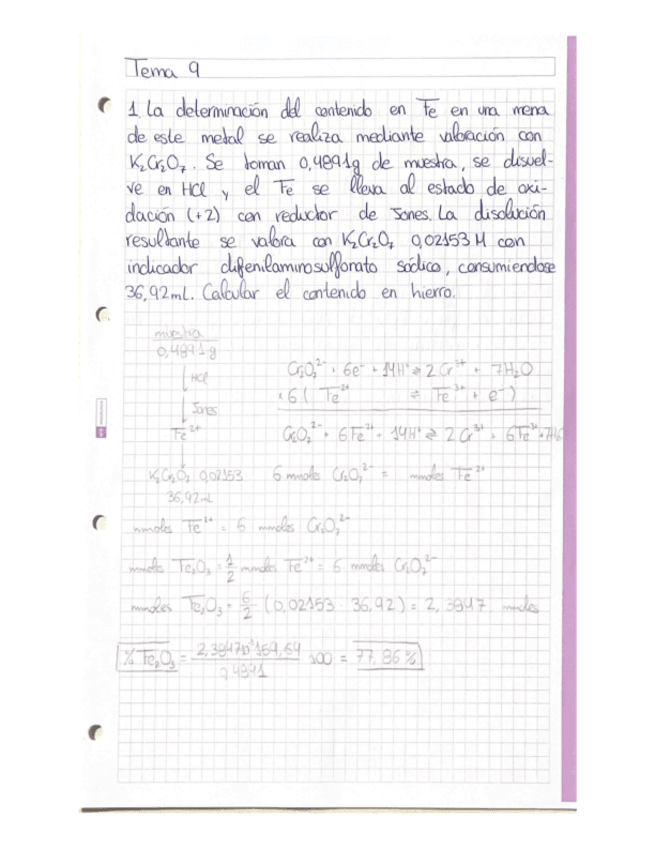 Tema 9
1. La determinación del contenido en Fe en una mena
de este metal se realiza mediante valoración con
K₂Cr₂O₇. Se toman 0,4891g de muestra, se disuel-
ve en HCl y el Fe se lleva al estado de oxi-
dación (+2) con reductor de Jones. La disolución
resultante se valora con K₂Cr₂O₇ 0,02153 M con
indicador difenilaminosulfonato sódico, consumiendose
36,92mL. Calcular el contenido en hierro.
muestra
0,4891g
HCl
Jones
Fe²⁺
K₂Cr₂O₇ 0,02153
36,92mL
Cr₂O₇²⁻ + 6e⁻ + 14H⁺ ⇌ 2Cr³⁺ + 7H₂O
×6 ( Fe²⁺ ⇌ Fe³⁺ + e⁻ )
Cr₂O₇²⁻ + 6Fe²⁺ + 14H⁺ ⇌ 2Cr³⁺ + 6Fe³⁺ + 7H₂O
6 mmoles Cr₂O₇²⁻ = mmoles Fe²⁺
mmoles Fe²⁺ = 6 mmoles Cr₂O₇²⁻
mmoles Fe₂O₃ = 1/2 mmoles Fe²⁺ = 6 mmoles Cr₂O₇²⁻
mmoles Fe₂O₃ = 6/2 (0,02153 · 36,92) = 2,3847 mmoles
% Fe₂O₃ = 100 = 77,86%